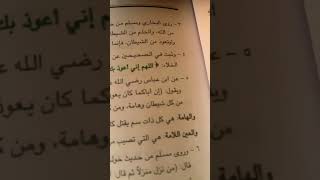 ٣ - روى البخاري ومسلم من
من الله، والحلم من الشيطا
وليتعوذ من الشيطان، فإنها
٥ - وثبت في الصحيحين عن
الخلاء: ﴿ اللهم إني أعوذ بك
٥ - عن ابن عباس رضي الله ع
ويقول: إن أباكما كان يعوذ
من كل شيطان وهامة، ومن ك
والهامة: هي كل ذات سم يقتل ك
والعين اللامة: هي التي تصيب م
٦ - وروى مسلم من حديث خول
قال: (من نزل منزلاً ثم قال